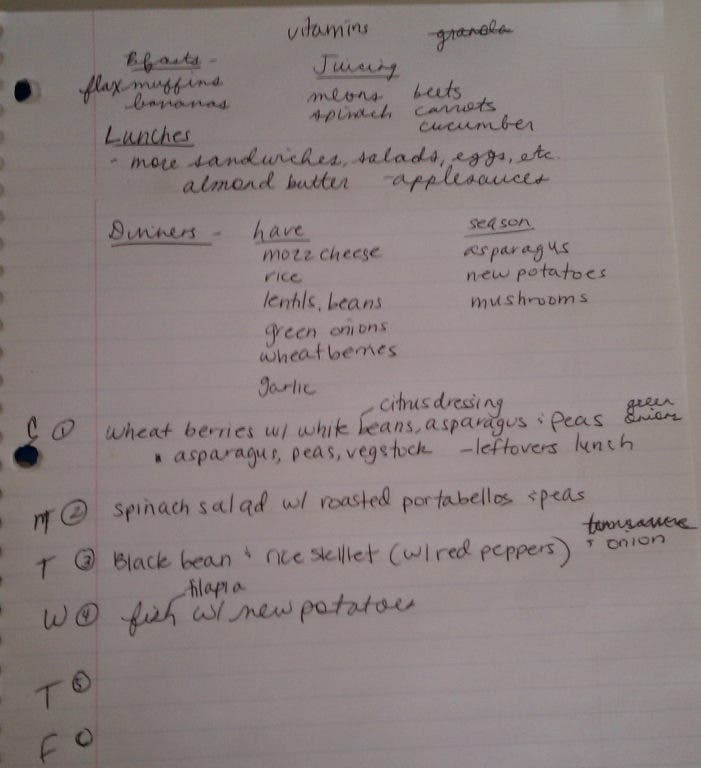 vitamins granola
Bfasts - Juicing
flax muffins melons beets
bananas spinach carrots
cucumber
Lunches
- more sandwiches, salads, eggs, etc.
almond butter - applesauces
Dinners - have season
mozz cheese asparagus
rice new potatoes
lentils, beans mushrooms
green onions
wheatberries
garlic
citrus dressing
S ① wheat berries w/ white beans, asparagus & peas green onions
• asparagus, peas, veg stock - leftovers lunch
M ② spinach salad w/ roasted portabellos & peas
T ③ Black bean & rice skillet (w/ red peppers) & onion
tilapia
W ④ fish w/ new potatoes
T ⑤
F